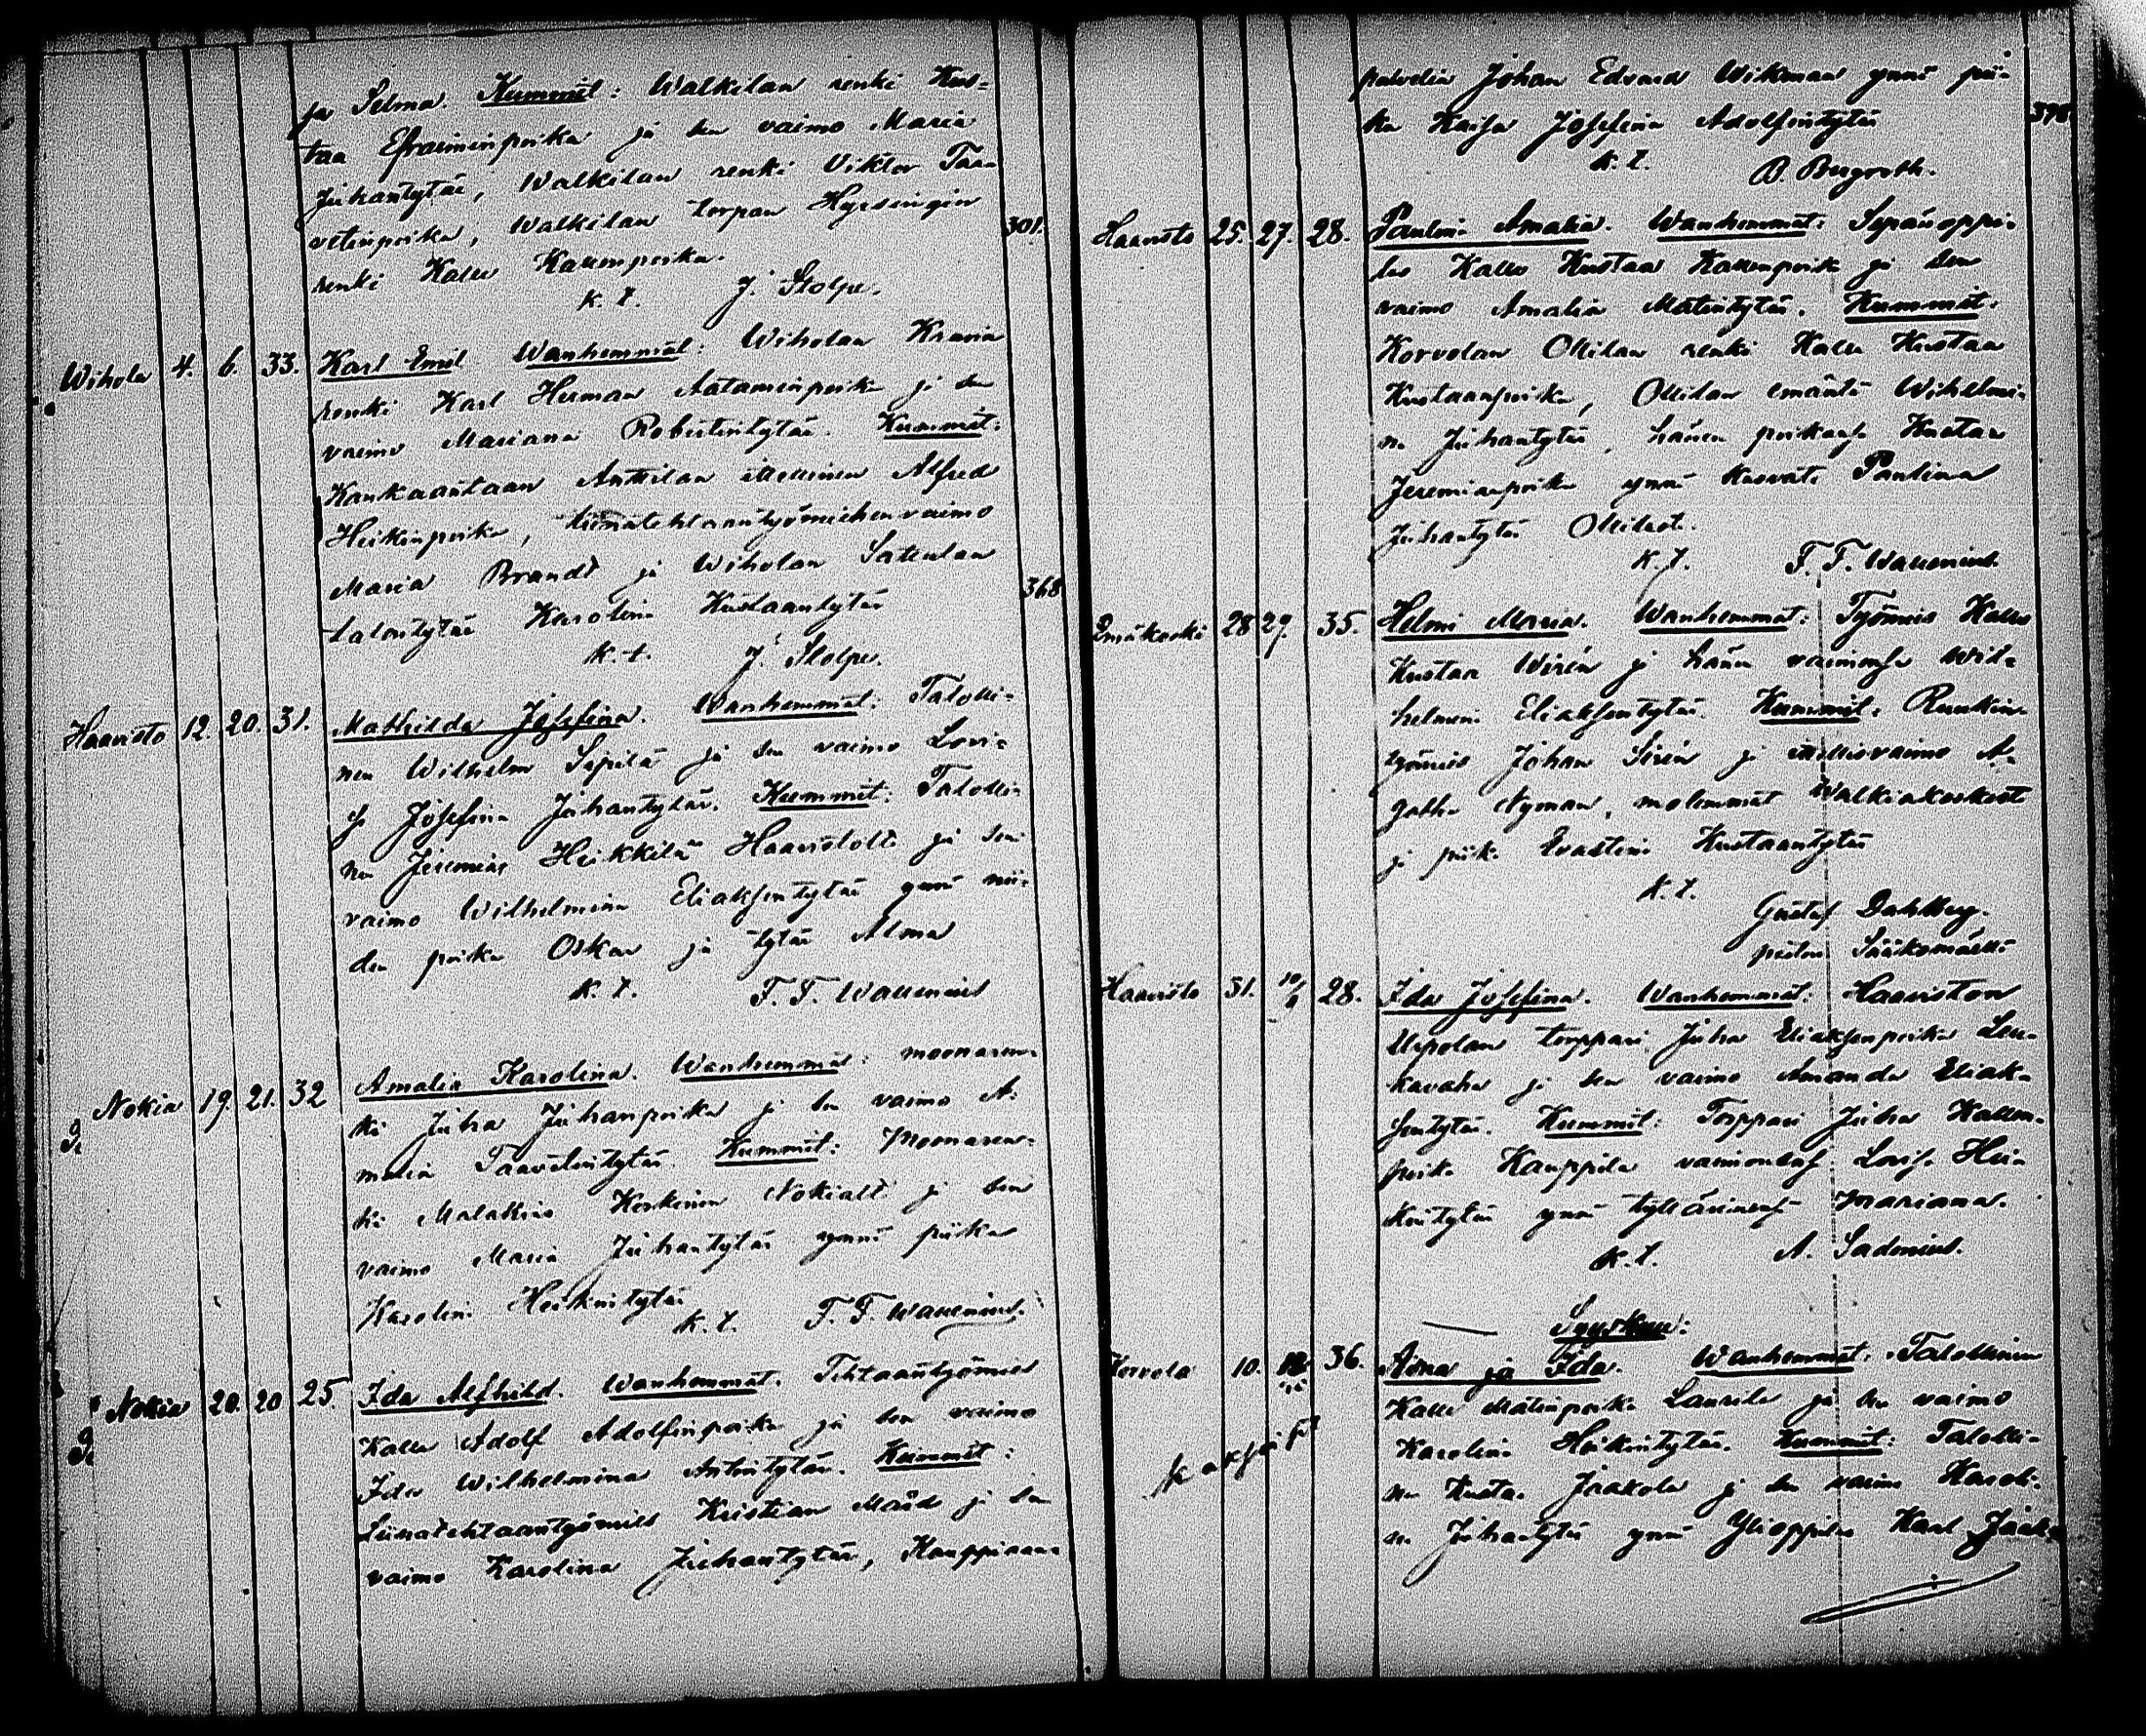 ja Selma. Kummit: Walkilan renki Kus-
taa Efraiminpoika ja sen vaimo Maria
Juhantytär, Walkilan renki Viktor Taa-
vetinpoika, Walkilan torpan Hyrsingin
renki Kalle Kallenpoika.
301.
k. t. J. Stolpe.
Wihola 4. 6. 33. Karl Emil Wanhemmat: Wiholan Kravin
renki Karl Herman Aataminpoika ja sen
vaimo Mariana Robertintytär. Kummit:
Kankaantaan Anttilan itsellinen Alfred
Heikinpoika, liinatehtaantyömiehen vaimo
Maria Brandt ja Wiholan Sattulan
talontytär Karolina Kustaantytär
368
k. t. J. Stolpe.
Haavisto 12. 20. 31. Mathilda Josefina. Wanhemmat: Talolli-
nen Wilhelm Sipilä ja sen vaimo Lovi-
sa Josefina Juhantytär. Kummit: Talolli-
nen Jeremias Heikkilä Haavistolta ja sen
vaimo Wilhelmina Eliaksentytär ynnä nii-
den poika Oskar ja tytär Alma
k. t. F. F. Wallenius
Nokia 19. 21. 32 Amalia Karolina. Wanhemmat: moonaren-
ki Juha Juhanpoika ja sen vaimo A-
malia Taavetintytär. Kummit: Moonaren-
ki Malakias Koskinen Nokialta ja sen
vaimo Maria Juhantytär ynnä piika
Karolina Heikintytär
k. t. F. F. Wallenius.
Nokia 20. 20 25. Ida Alfhild. Wanhemmat. Tehtaantyömies
Kalle Adolf Adolfinpoika ja sen vaimo
Ida Wilhelmina Antintytär. Kummit:
Liinatehtaantyömies Kristian Mård ja sen
vaimo Karolina Juhantytär, Kauppiaan
palvelia Johan Edvard Wikman ynnä pii-
ka Kaisa Josefina Adolfintytär
378
k. t. B. Bergroth.
Haavisto 25. 27. 28. Paulina Amalia. Wanhemmat: Sepänoppi-
las Kalle Kustaa Kallenpoika ja sen
vaimo Amalia Matintytär. Kummit:
Korvolan Ollilan renki Kalle Kustaa
Kustaanpoika, Ollilan emäntä Wilhelmi-
na Juhantytär, hänen poikansa Kustaa
Jeremianpoika ynnä kasvatti Paulina
Juhantytär Ollilasta.
k. t. F. F. Wallenius.
Emäkoski 28 29. 35. Helmi Maria. Wanhemmat: Työmies Kalle
Kustaa Wirén ja hänen vaimonsa Wil-
helmina Eliaksentytär. Kummit: Ruukin-
työmies Johan Sirén ja itsellisvaimo A-
gatha Nyman, molemmat Walkiakoskelta
ja piika Evastina Kustaantytär
k. t.
Gustaf Dahlberg.
pastori Sääksmäellä
Haavisto 31. 10/6 28. Ida Josefina. Wanhemmat: Haaviston
Uspolan torppari Juha Eliaksenpoika Leu-
kavaha ja sen vaimo Amanda Eliak-
sentytär. Kummit: Torppari Juha Kallen-
poika Kauppila vaimonensa Lovisa Hei-
kintytär ynnä tyttärinensä Mariana.
k. t. A. Sadenius.
Syyskuu:
Korvola 10. 12 36. Aina ja Ida. Wanhemmat: Talollinen
Kalle Matinpoika Laurila ja sen vaimo
Karolina Heikintytär. Kummit: Talolli-
kaksoiset
nen Kustaa Jaakola ja sen vaimo Karoli-
na Juhantytär ynnä Ylioppilas Karl Jaak-